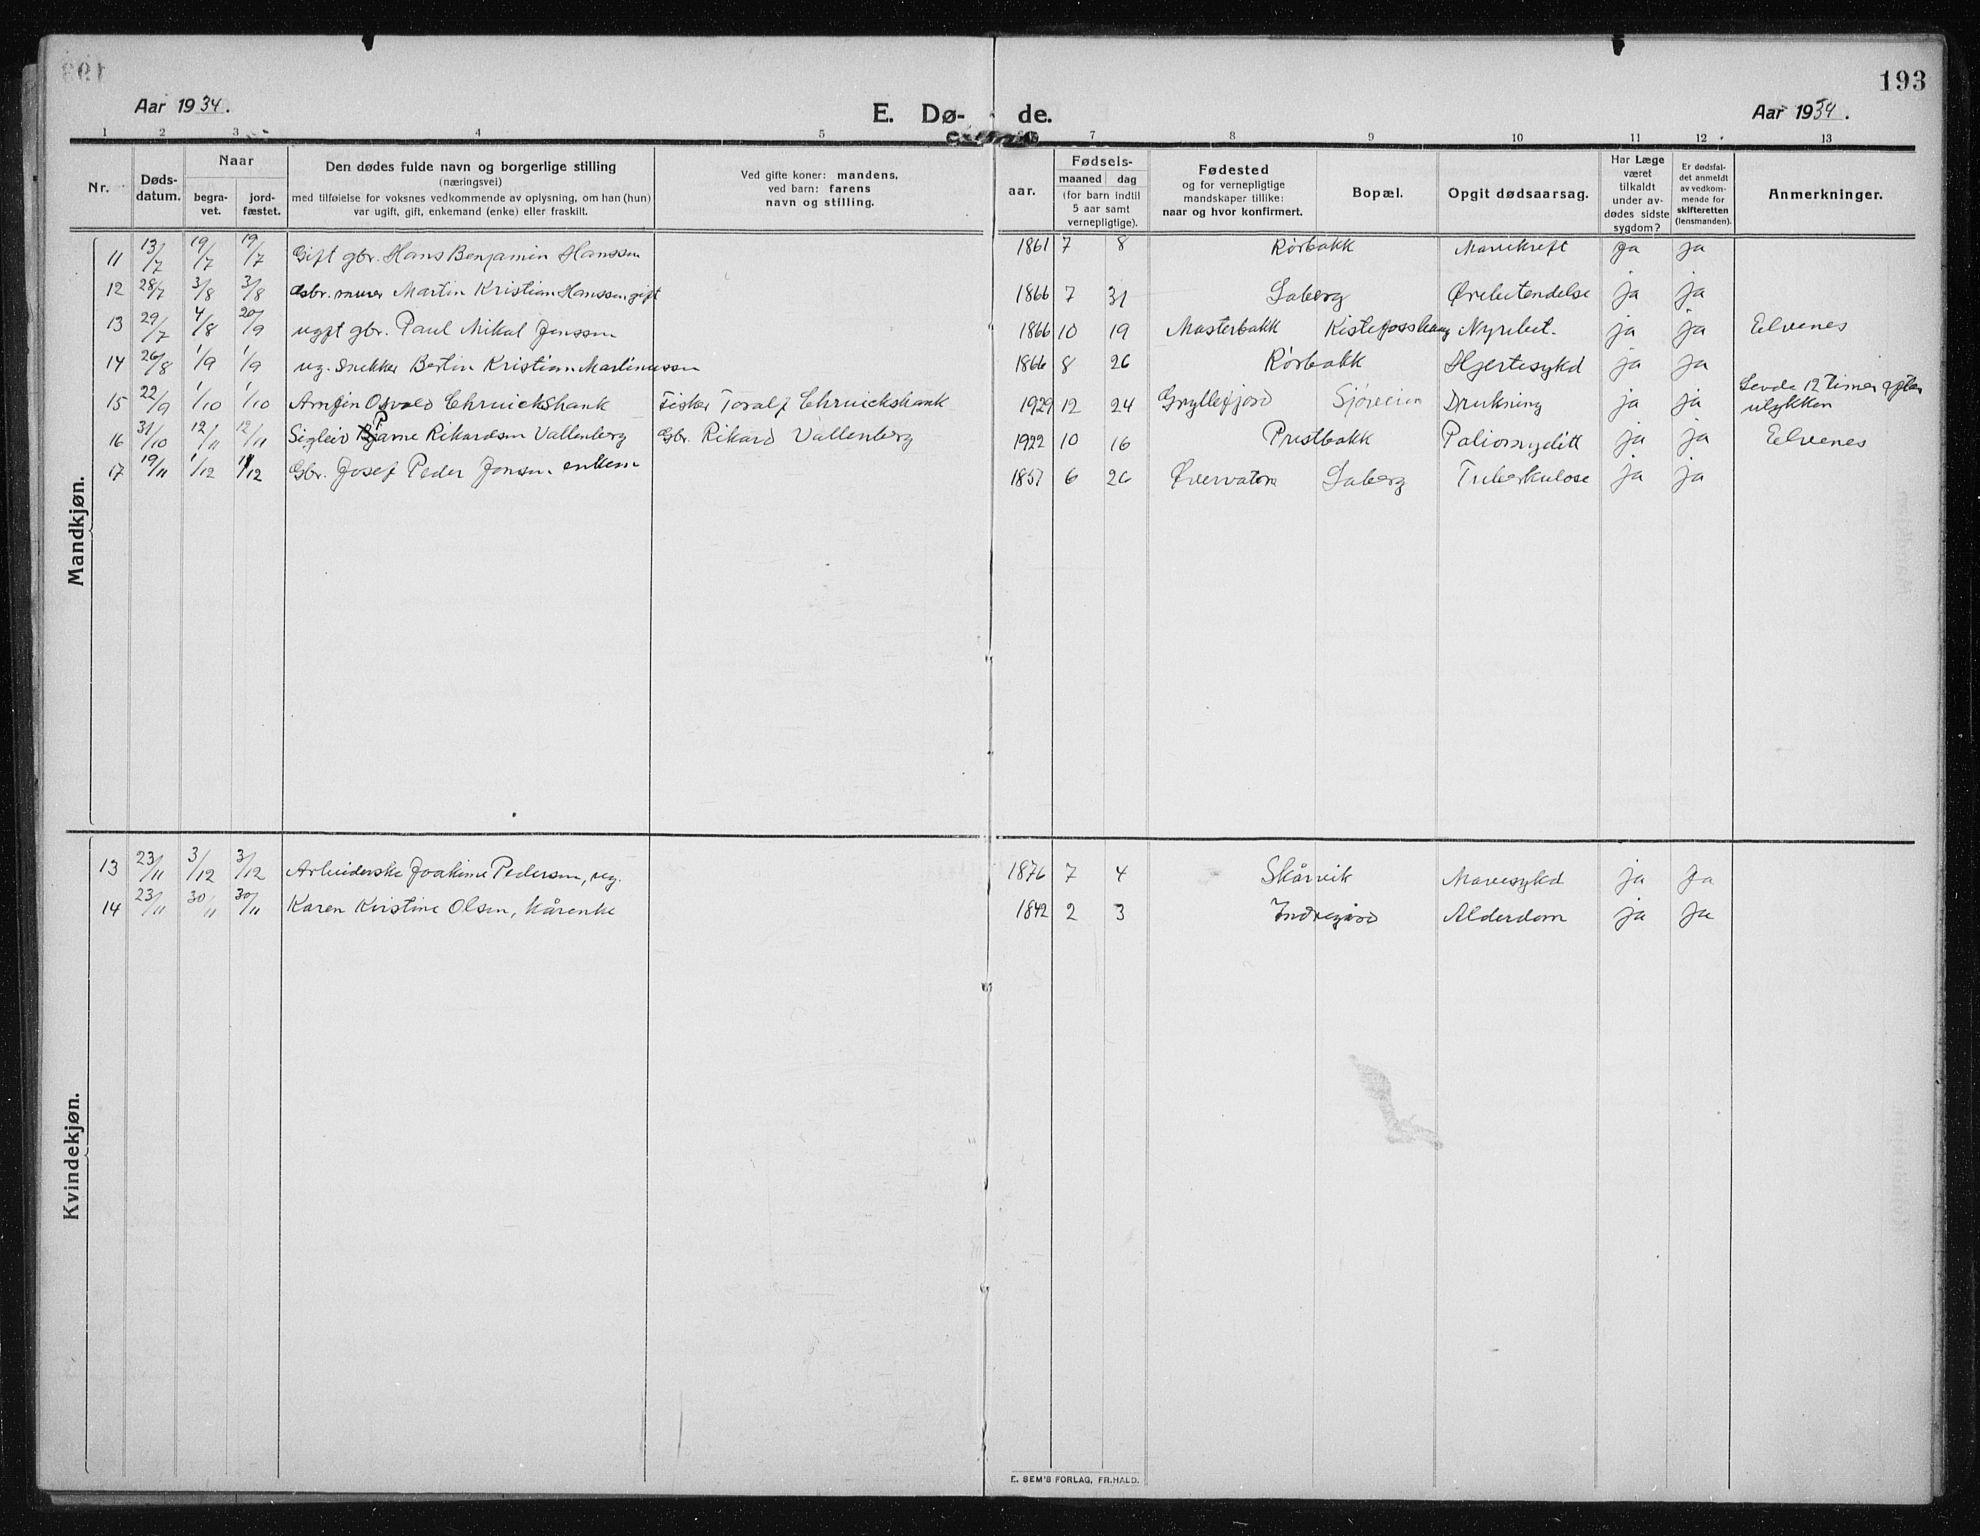 193
Aar 1934.
E. Dø- de.
Aar 1934.
1 2 3 4 5 7 8 9 10 11 12 13
Nr.
Døds-
datum.
Naar
begra-
vet.
jord-
fæstet.
Den dødes fulde navn og borgerlige stilling
(næringsvei)
med tilføielse for voksnes vedkommende av oplysning, om han (hun)
var ugift, gift, enkemand (enke) eller fraskilt.
Ved gifte koner: mandens,
ved barn: farens
navn og stilling.
aar.
Fødsels-
maaned dag
(for barn indtil
5 aar samt
vernepligtige).
Fødested
og for vernepligtige
mandskaper tillike:
naar og hvor konfirmert.
Bopæl.
Opgit dødsaarsag.
Har Læge
været
tilkaldt
under av-
dødes sidste
sygdom?
Er dødsfal-
det anmeldt
av vedkom-
mende for
skifteretten
(lensmanden).
Anmerkninger.
Mandkjøn.
11 13/7 19/7 19/7 Gift gbr. Hans Benjamin Hanssen 1861 7 8 Rørbakk Mavekreft ja ja
12 28/7 3/8 3/8 Gbr. murer Martin Kristian Hanssen gift 1866 7 31 Laberg Ørebetendelse ja ja
13 29/7 4/8 20/9 ugift gbr. Paul Mikal Jenssen 1866 10 19 Masterbakk Kistefosshaug Nyrebet. ja ja Elvenes
14 26/8 1/9 1/9 ug. snekker Bertin Kristian Martinussen 1866 8 26 Rørbakk Hjertesykd ja ja
15 22/9 1/10 1/10 Arnfin Osvald Chruickshank Fisker Toralf Chruickshank 1929 12 24 Gryllefjord Sjøveien Drukning ja ja Levde 12 timer efter
ulykken
16 31/10 12/11 12/11 Sigleiv Bjarne Rikardsen Vallenberg Gbr. Rikard Vallenberg 1922 10 16 Prestbakk Paliomyditt ja ja Elvenes
17 19/11 1/12 1/12 Gbr. Josef Peder Jonsen enkem 1857 6 26 Øvervatn Laberg Tuberkulose ja ja
Kvindekjøn.
13 23/11 3/12 3/12 Arbeiderske Joakime Pedersen, ug. 1876 7 4 Skårvik Mavesykd ja ja
14 23/11 30/11 30/11 Karen Kristine Olsen, kårenke 1842 2 3 Indregård Alderdom ja ja
E. SEM'S FORLAG, FR.HALD.